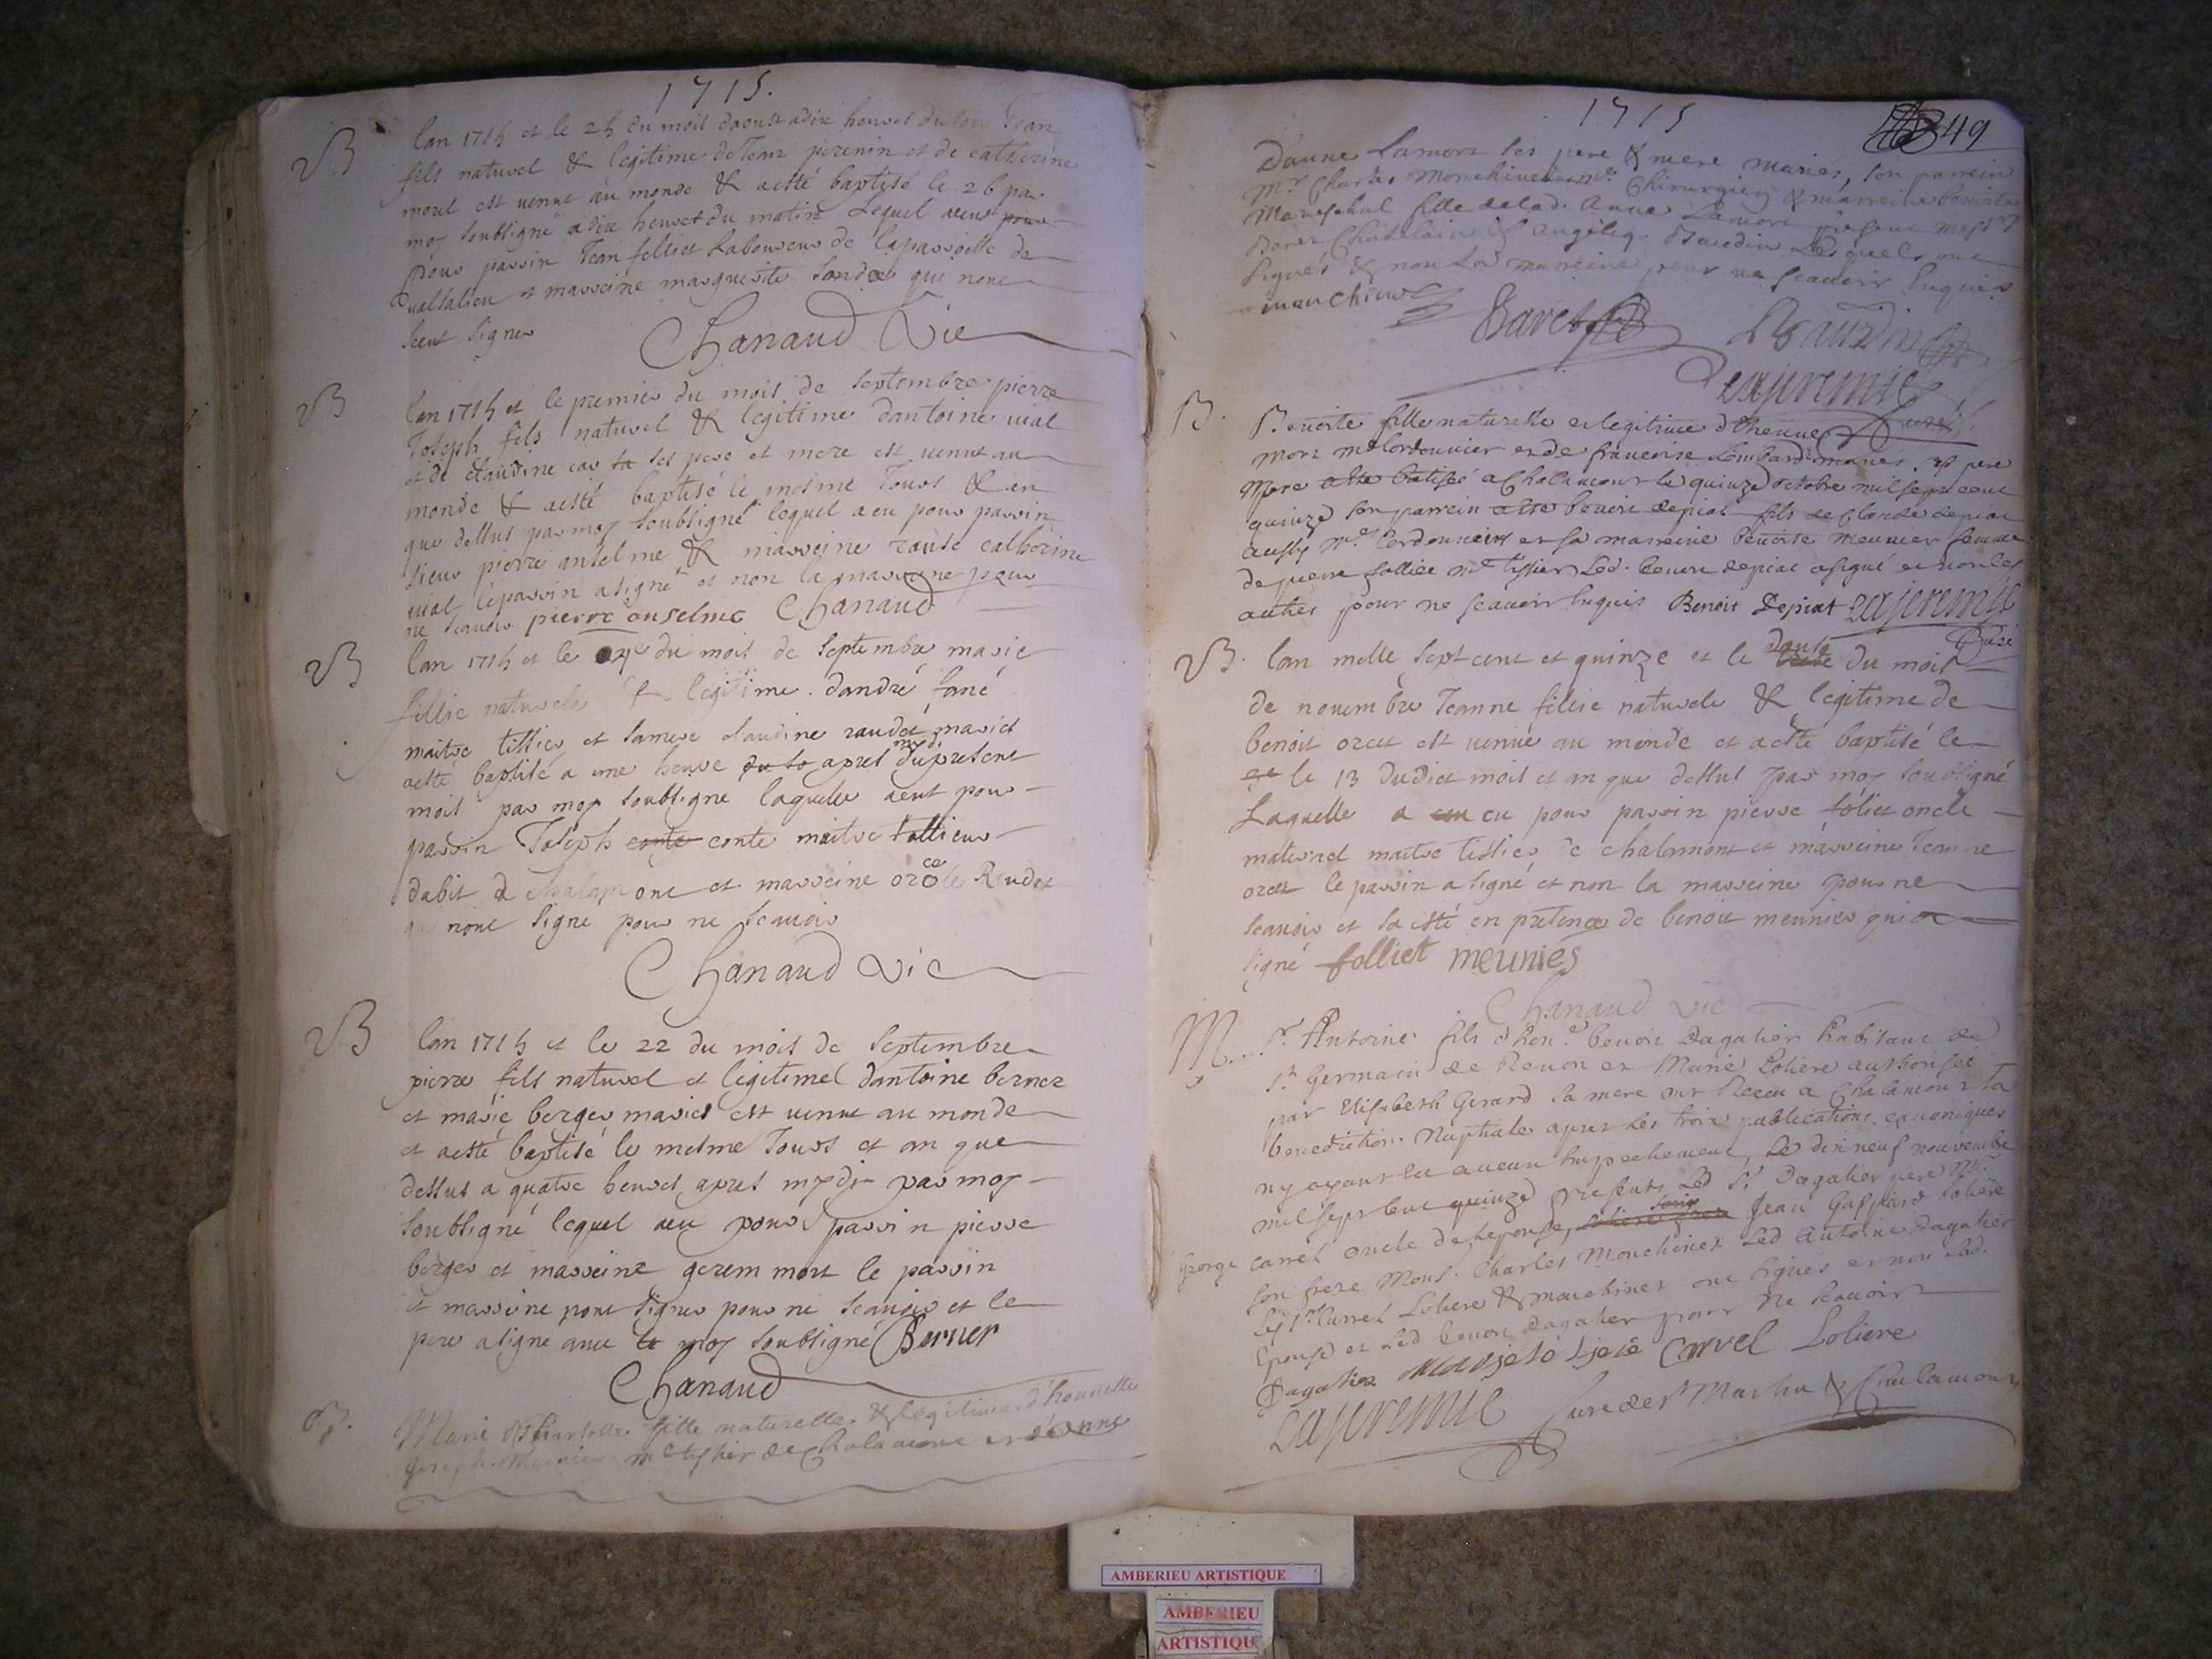 1715.
B lan 1715 et le 25 du mois daoust a dix heures du soir Jean
fils naturel & legitime de Jean perenin et de catherine
morel est venut au monde & aesté baptisé le 26 par
moy soubsigné a dix heures du matin Lequel aeut pour
pour parrin Jean felliet Laboureur de laparroisse de
et marreine marguerite qui nont
sceut signer
Chanaud Vic
B lan 1715 et le premier du mois de septembre pierre
Joseph fils naturel & legitime dantoine vial
et de claudine ses pere et mere est venut au
monde & aesté baptisé le mesme Jour & en
que dessus par moy soubsigné lequel a eu pour parrin
sieur pierre anselme & marreine catherine
vial le parrin a signé et non la marreine pour
ne scauoir pierre anselme Chanaud
B lan 1715 et le du mois de septembre marie
fillie naturele & legitime dandré fané
maitre tissier et samere claudine raudet mariés
aesté baptisé a une heure apres midi du present
mois par moy soubsigné laquelle aeut pour
parrin Joseph conte conte maitre
dabit de chalamont et marreine Raudet
qui nont signe pour ne scauoir
Chanaud Vic
B lan 1715 et le 22 du mois de septembre
pierre fils naturel et legitime dantoine berner
et marie berger mariés est venut au monde
et aesté baptisé le mesme Jour et an que
dessus a quatre heures apres mydi par moy
soubsigné lequel aeu pour parrin pierre
berger et marreine morel le parrin
et marreine nont signer pour ne scauoir et le
pere a signe avec le moy soubsigné Berner
Chanaud
B. Marie Charlotte fille naturelle & légitime d'honneste
Joseph me tissier de Chalamont et d'Anne
1715
49
D'anne Lamort ses pere & mere mariés, son parrein
Mr Charles Monchinet me Chirurgien & marreine benoite
Mareschal fille de lad. Anne Lamort présent
Baret Chatelain & angéliq. Baudin Lesquels ont
signés & non La marreine pour ne scauoir
monchinet
Baret Baudin
Lajeremie
Curé
B. Benoite fille naturelle et legitime d'Ethienne
mort me Cordonnier et de francoise Lombard mariés, ses pere
Mere a été batisée a Chalamont le quinze octobre mil sept cent
quinze son parrein a été benoit depiat fils de Claude depiat
aussy me Cordonnier et sa marreine benoite meunier femme
de pierre folliet me tissier Led. benoit depiat a signé et non les
autres pour ne scauoir Benoit Depiat Lajeremie
Curé
B. lan melle sept cent et quinze et le douse du mois
de nouembre Jeanne fillie naturele & legitime de
benoit orcet est venue au monde et aesté baptisé le
le 13 dudict mois et an que dessus par moy soubsigné
Laquelle a eu pour parrin pierre foliet oncle
maternel maitre tissier de chalamont et marreine Jeanne
orcet le parrin a signé et non la marreine pour ne
scauoir et sa esté en presence de benoit meunier qui a
signé folliet meunies
Chanaud vic
M Sr Antoine fils d'hon. benoit Dagalier habitant de
St Germain de Renon et Marie Loliere authorisée
par Elisabeth Gerard sa mere ont Receu a Chalamont la
benediction Nuptiale apres Les trois publications canoniques
ny ayant eu aucun Empechement, Le dix neuf nouvembre
mil sept cent quinze presents Led Sr Dagalier pere Mr
George Carrel oncle de Lepouse, Jean Gaspard Loliere
son frere Mons. Charles Monchinet Led Antoine Dagalier
Les Srs Carrel Loliere & monchinet ont signés et non Lad.
Epouse et Led benoit Dagalier pour ne scauoir
Dagalier Carrel Loliere
Lajeremie Curé de St Martin de Chalamont
AMBERIEU ARTISTIQUE
AMBERIEU
ARTISTIQU